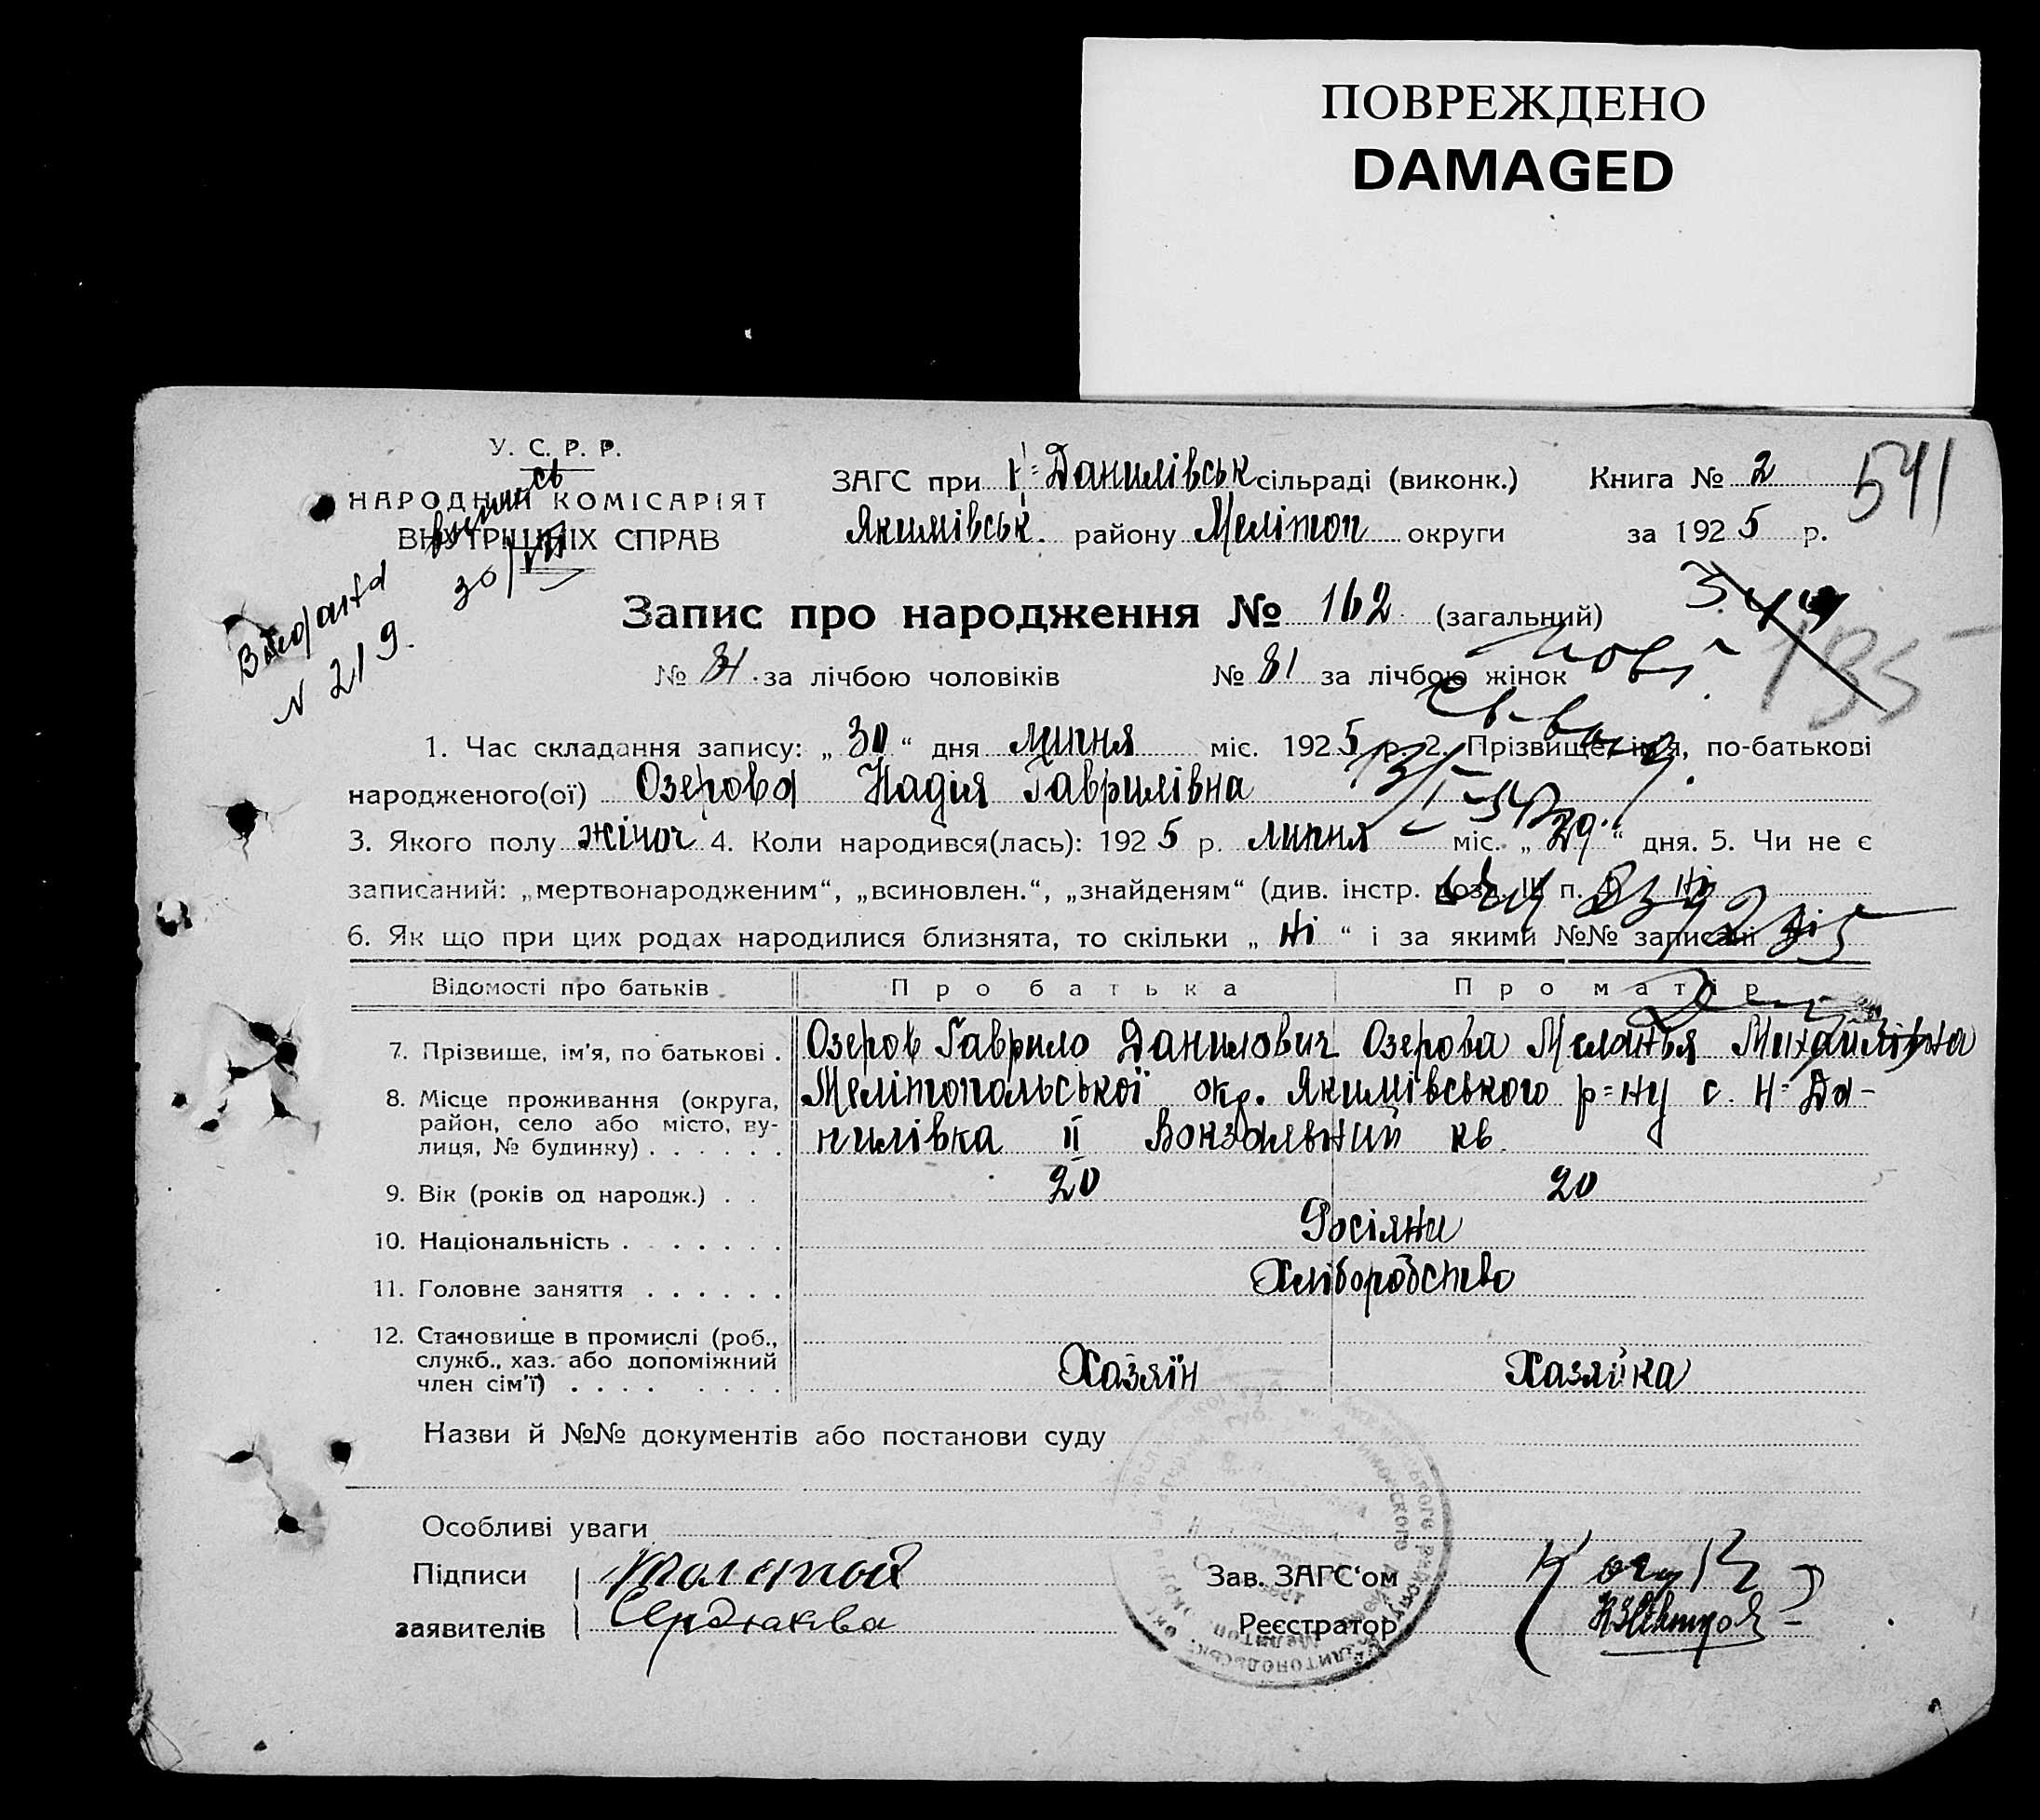 ПОВРЕЖДЕНО
DAMAGED
У. С. Р. Р.
НАРОДНИЙ КОМІСАРІЯТ
ВНУТРІШНІХ СПРАВ
ЗАГС при Н=Данилівськ сільраді (виконк.)
Якимівськ. району Мелітоп округи
Книга № 2
за 1925 р.
541
30/VII
N 219.
Запис про народження № 162 (загальний)
135
№ 81. за лічбою чоловіків № 81 за лічбою жінок
1. Час складання запису: „ 30 “ дня липня міс. 1925 р. 2. Прізвище, ім'я, по-батькові
народженого(ої) Озерова Надія Гаврилівна
3. Якого полу жіноч 4. Коли народився(лась): 1925 р. липня міс. „ 29 “ дня. 5. Чи не є
записаний: „мертвонародженим“, „всиновлен.“, „знайденям“ (див. інстр. розд. III п. ні
6. Як що при цих родах народилися близнята, то скільки „ ні “ і за якими №№ записані ні
Відомості про батьків Про батька Про матір
7. Прізвище, ім'я, по батькові . Озеров Гаврило Данилович Озерова Меланья Михайлівна
8. Місце проживання (округа, район, село або місто, вулиця, № будинку) . . . . . . Мелітопольської окр. Якимівського р=ну с. Н=Да-
нилівка II Вокзальний кв.
9. Вік (років од народж.) . . 20 20
10. Національність . . . . . . . Росіяни
11. Головне заняття . . . . . . Хліборобство
12. Становище в промислі (роб., служб., хаз. або допоміжний член сім'ї) . . . . . . . . . Хазяїн Хазяйка
Назви й №№ документів або постанови суду
Особливі уваги
Підписи Толстой
заявителів Сердюкова
Зав. ЗАГС'ом
Реєстратор